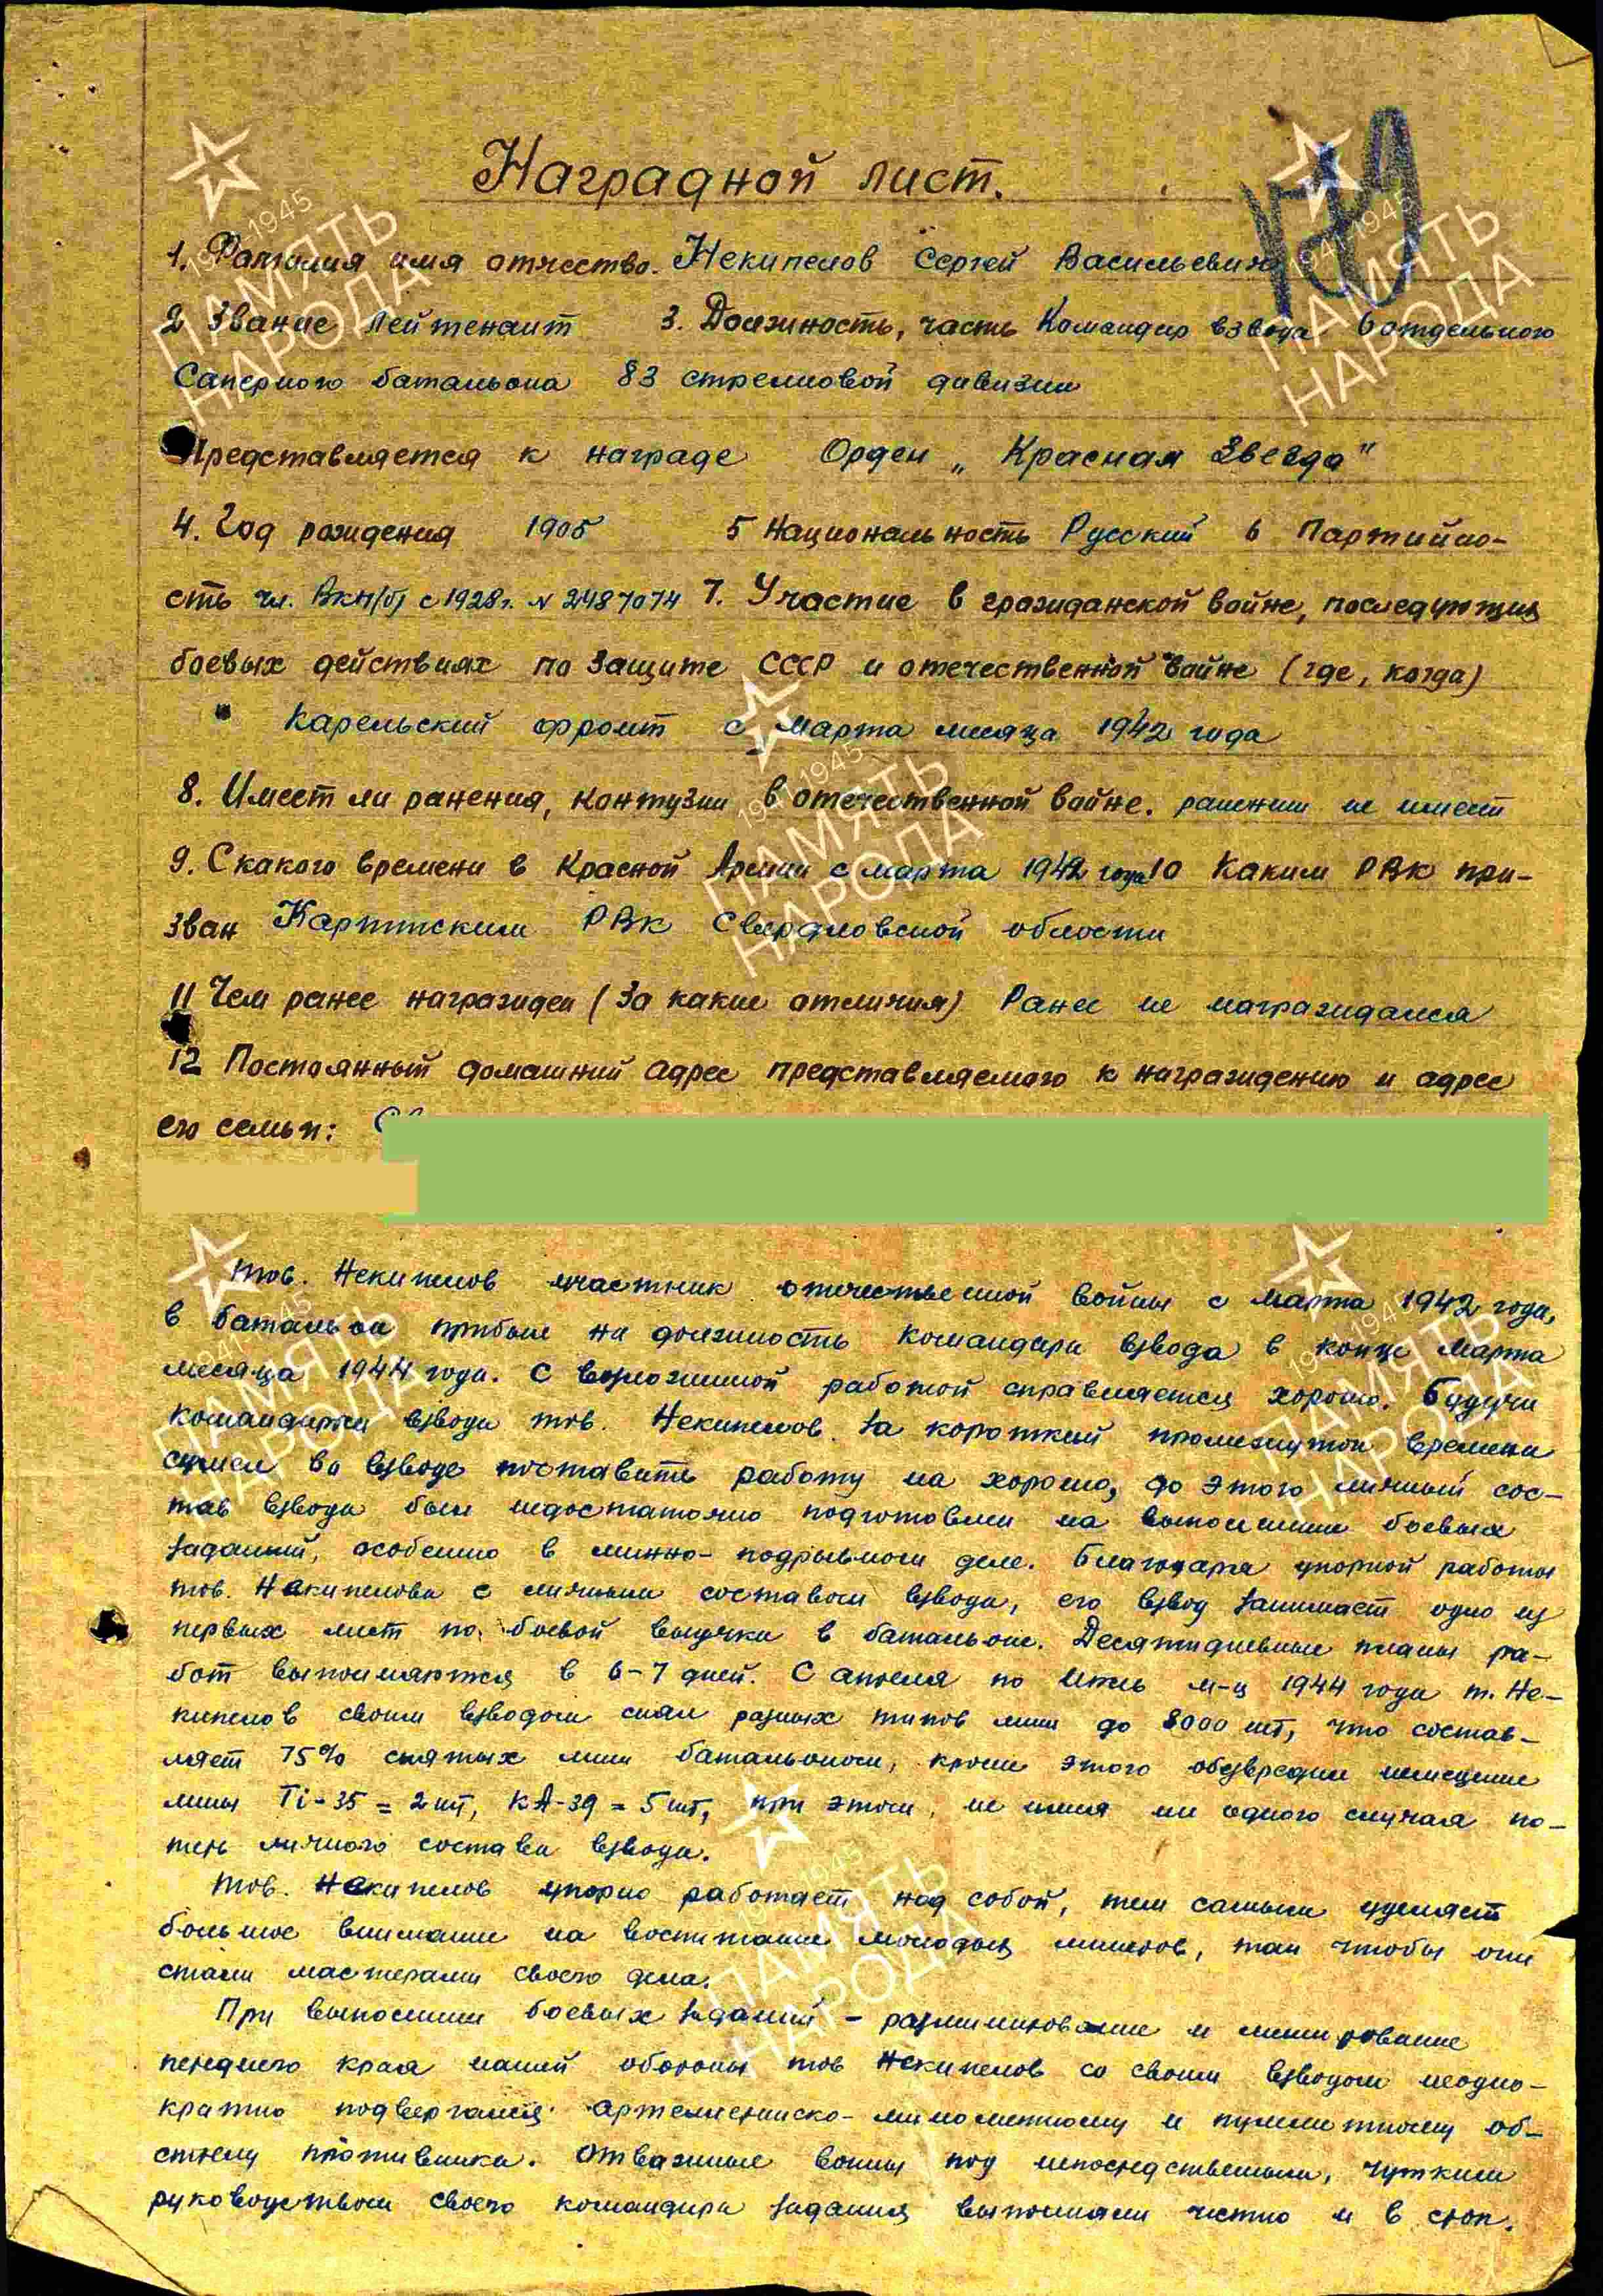 Наградной лист.
1. Фамилия имя отчество. Некипелов Сергей Васильевич
2 Звание лейтенант 3. Должность, часть Командир взвода отдельного
Саперного батальона 83 стрелковой дивизии
Представляется к награде Орден „Красная Звезда"
4. Год рождения 1905 5 Национальность Русский 6 Партийно-
сть чл. ВКП/б/ с 1928г. N 2487074 7. Участие в гражданской войне, последующих
боевых действиях по защите СССР и отечественной войне (где, когда)
Карельский фронт с марта месяца 1942 года
8. Имеет ли ранения, контузии в отечественной войне. ранений не имеет
9. С какого времени в Красной Армии с марта 1942 года 10 Каким РВК при-
зван РВК Свердловской области
11 Чем ранее награжден (За какие отличия) Ранее не награждался
12 Постоянный домашний адрес представляемого к награждению и адрес
его семьи:
тов. Некипелов участник отечественной войны с марта 1942 года,
в батальон прибыл на должность командира взвода в конце марта
месяца 1944 года. С возложенной работой справляется хорошо. Будучи
командиром взвода тов. Некипелов за короткий промежуток времени
сумел во взводе поставить работу на хорошо, до этого личный сос-
тав взвода был недостаточно подготовлен на выполнение боевых
заданий, особенно в минно-подрывном деле. Благодаря упорной работы
тов. Некипелова с личным составом взвода, его взвод занимает одно из
первых мест по боевой выучки в батальоне. Десятидневные планы ра-
бот выполняются в 6-7 дней. С апреля по Июль м-ц 1944 года т. Не-
кипелов своим взводом снял разных типов мин до 8000 шт, что состав-
ляет 75% снятых мин батальоном, кроме этого обезвредил немецкие
мины Ti-35 = 2 шт, КА-39 = 5 шт, при этом, не имея ни одного случая по-
терь личного состава взвода.
Тов. Некипелов упорно работает над собой, тем самым уделяет
большое внимание на воспитание молодых минеров, так чтобы они
стали мастерами своего дела.
При выполнении боевых заданий - разминирование и минирование
переднего края нашей обороны тов Некипелов со своим взводом неодно-
кратно подвергался артеллерийско-минометному и пулеметному об-
стрелу противника. Отважные воины под непосредственным, чутким
руководством своего командира задания выполняли честно и в срок.
1941 1945
ПАМЯТЬ
НАРОДА